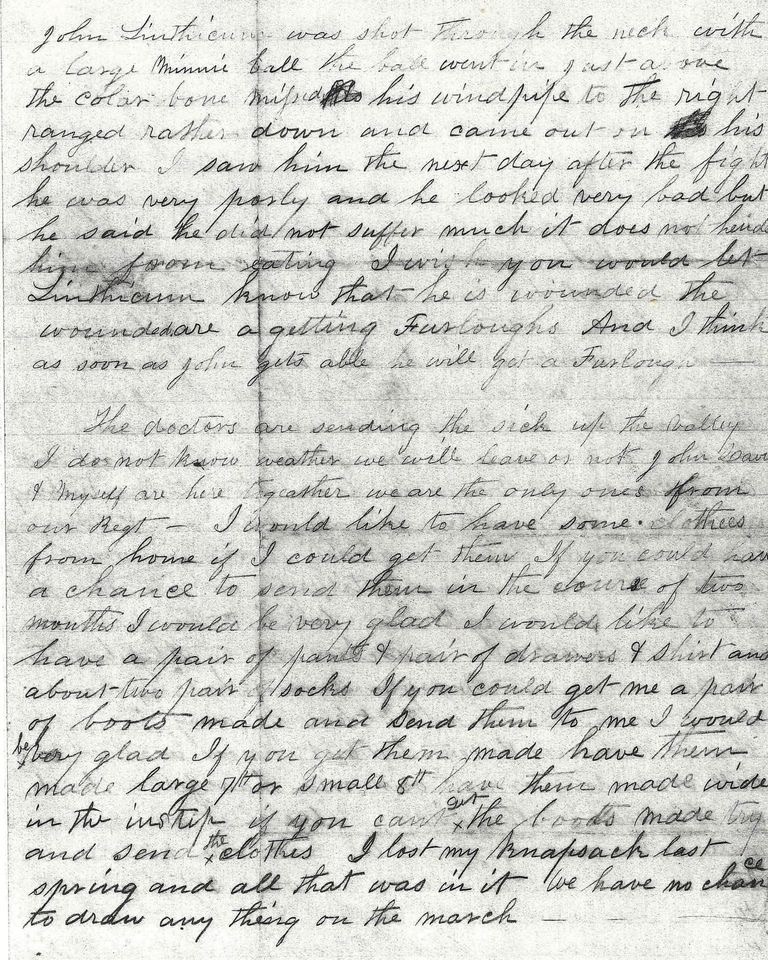 John Linthicum was shot through the neck with
a large Minnie ball the ball went in just above
the colar bone missed his windpipe to the right
ranged rather down and came out on his
shoulder I saw him the next day after the fight
he was very porly and he looked very bad but
he said he did not suffer much it does not hend
him from eating I wish you would let
Linthicum know that he is wounded the
wounded are a getting Furloughs And I think
as soon as John gets able he will get a Furlough —
The doctors are sending the sick up the valley
I do not know weather we will leave or not John
& Myself are here togeather we are the only ones from
our Regt — I would like to have some clothes
from home if I could get them If you could have
a chance to send them in the course of two
months I would be very glad I would like to
have a pair of pants & pair of drawers & shirt and
about two pair of socks If you could get me a pair
of boots made and send them to me I would
be very glad If you get them made have them
made large 7th or small 8th have them made wide
in the instep if you cant get the boots made try
and send the clothes I lost my knapsack last
spring and all that was in it We have no chance
to draw any thing on the march —